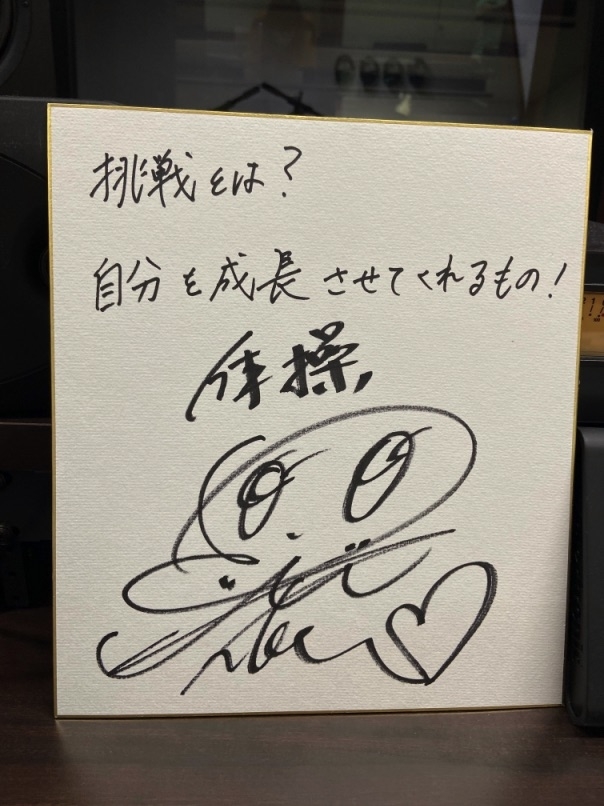 挑戦とは?
自分を成長させてくれるもの!
体操